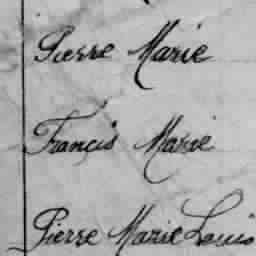 Pierre Marie
Francis Marie
Pierre Marie Louis